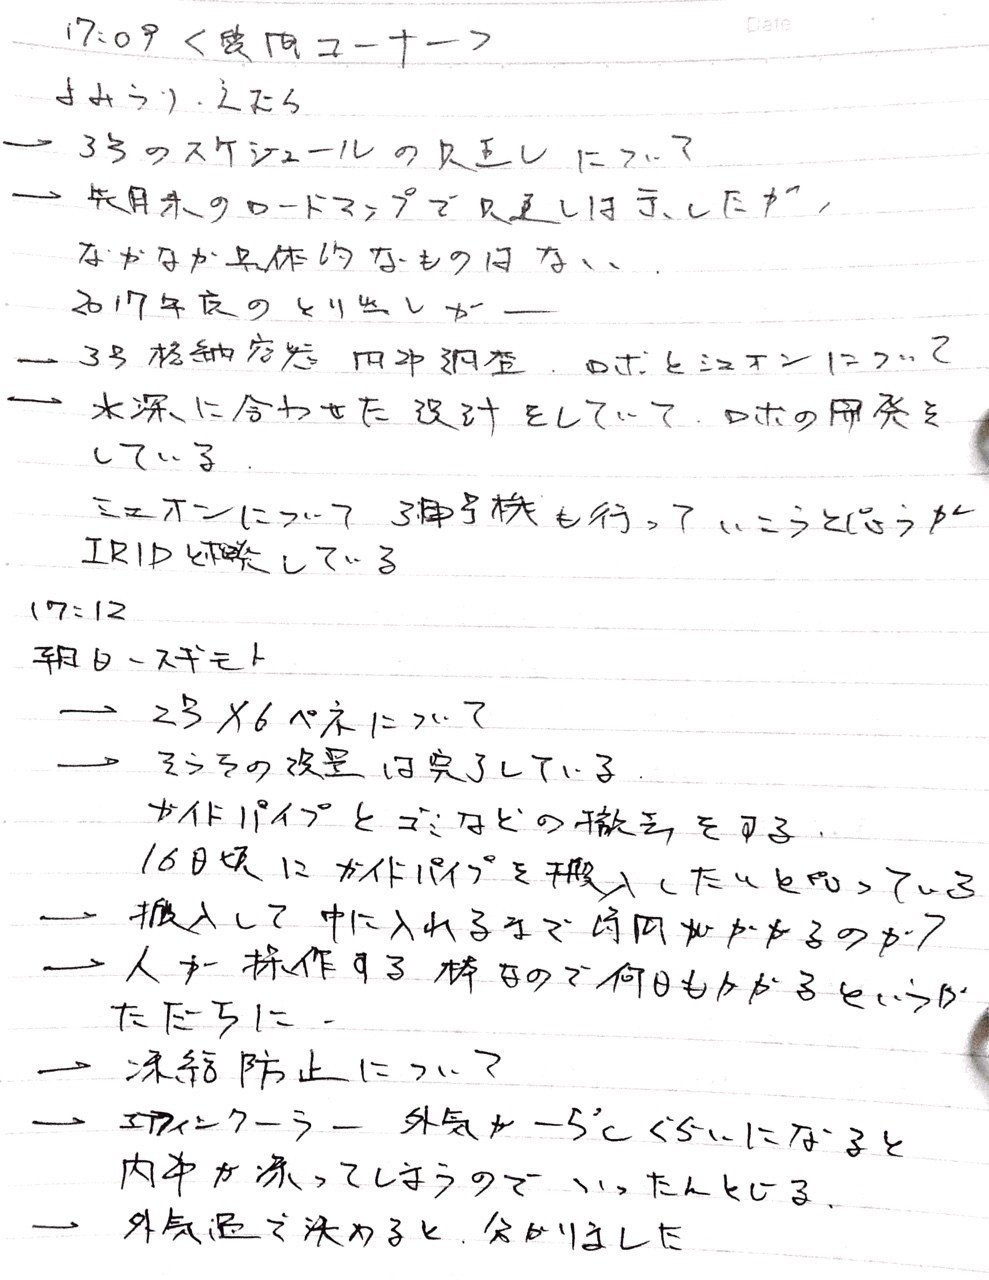 Date
17:09 <質問コーナー>
よみうり.えたら
→ 3号のスケジュールの見直しについて
→ 先月末のロードマップで見直しは示したが、
なかなか具体的なものはない、.
2017年度のとり出しが ー
→ 3号格納容器 内部調査. ロボとミュオンについて
→ 水深に合わせた設計をしていて.ロボの開発を
している.
ミュオンについて 3号機も行っていこうと思うが
IRIDと相談している
17:12
朝日-スギモト
→ 2号X6ペネについて
→ そうちの設置は完了している.
ガイドパイプとゴミなどの撤去をする.
16日頃にガイドパイプを搬入したいと思っている
→ 搬入して中に入れるまで時間がかかるのか?
→ 人が操作する棒なので何日もかかるというか
ただちに-
→ 凍結防止について
→ エアフィンクーラー 外気が-5℃ぐらいになると
内部が凍ってしまうのでいったんとじる.
→ 外気温で決めると.分かりました